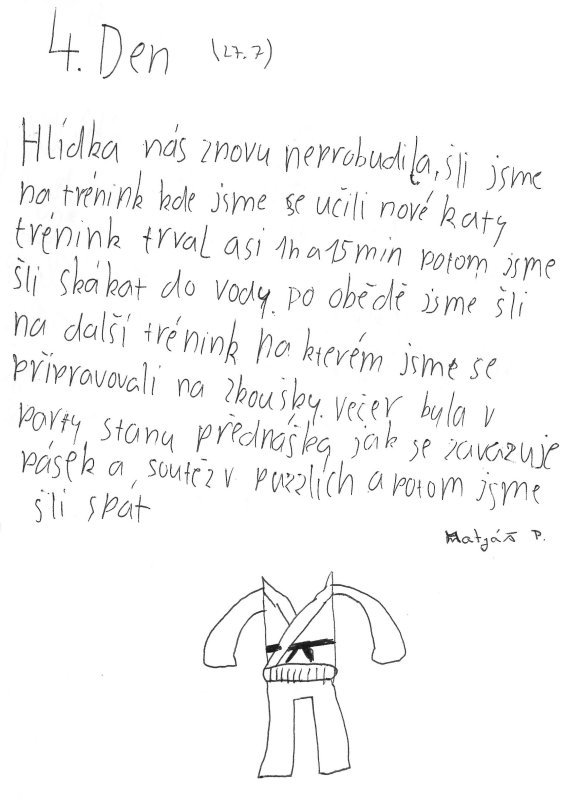 4. Den (27.7)
Hlídka nás znovu neprobudila, šli jsme
na trénink kde jsme se učili nové katy
trénink trval asi 1h a 15min potom jsme
šli skákat do vody. po obědě jsme šli
na další trénink na kterém jsme se
připravovali na zkoušky. večer byla v
party stanu přednáška jak se zavazuje
pásek a, soutěž v puzzlích a potom jsme
šli spát
Matyáš P.